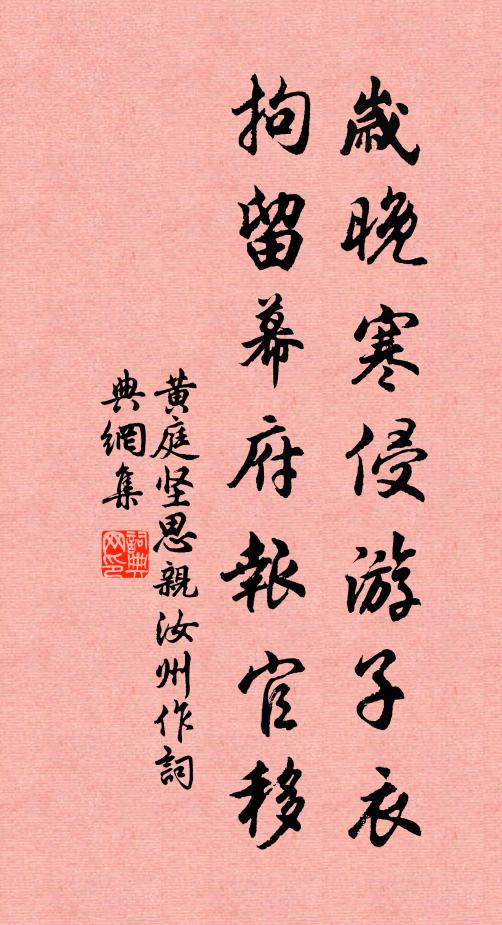 歲晚寒侵游子衣
拘留幕府報官移
黄庭坚思親汝州作詞
典網集
詞典
网印